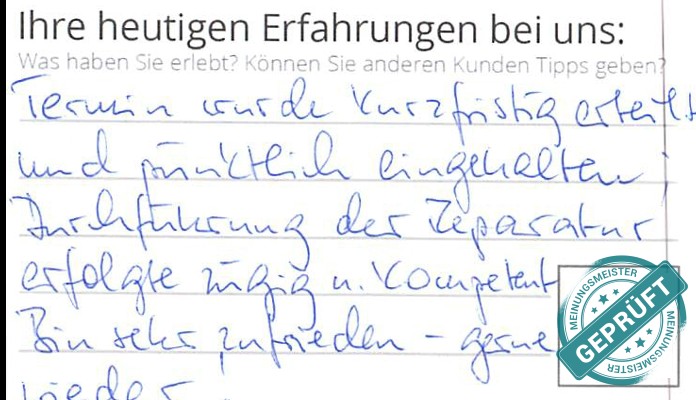 Ihre heutigen Erfahrungen bei uns:
Was haben Sie erlebt? Können Sie anderen Kunden Tipps geben?
Termin wurde kurzfristig erteilt
und pünktlich eingehalten,
Durchführung der Reparatur
erfolgte zügig u. kompetent
Bin sehr zufrieden - gerne
wieder.
MEINUNGSMEISTER
GEPRÜFT
MEINUNGSMEISTER